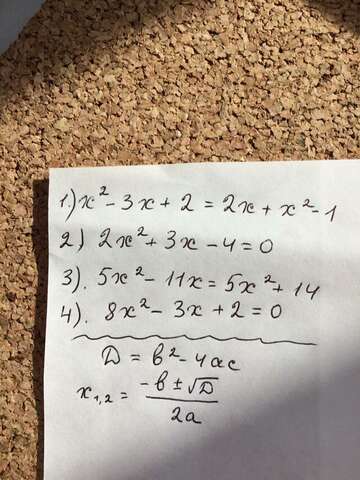 1) x² - 3x + 2 = 2x + x² - 1
2) 2x² + 3x - 4 = 0
3). 5x² - 11x = 5x² + 14
4). 8x² - 3x + 2 = 0
D = b² - 4ac
x₁,₂ = (-b ± √D) / 2a